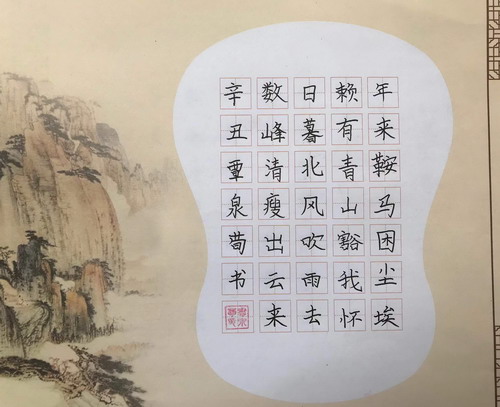 年来鞍马困尘埃
赖有青山豁我怀
日暮北风吹雨去
数峰清瘦出云来
辛丑覃泉荀书